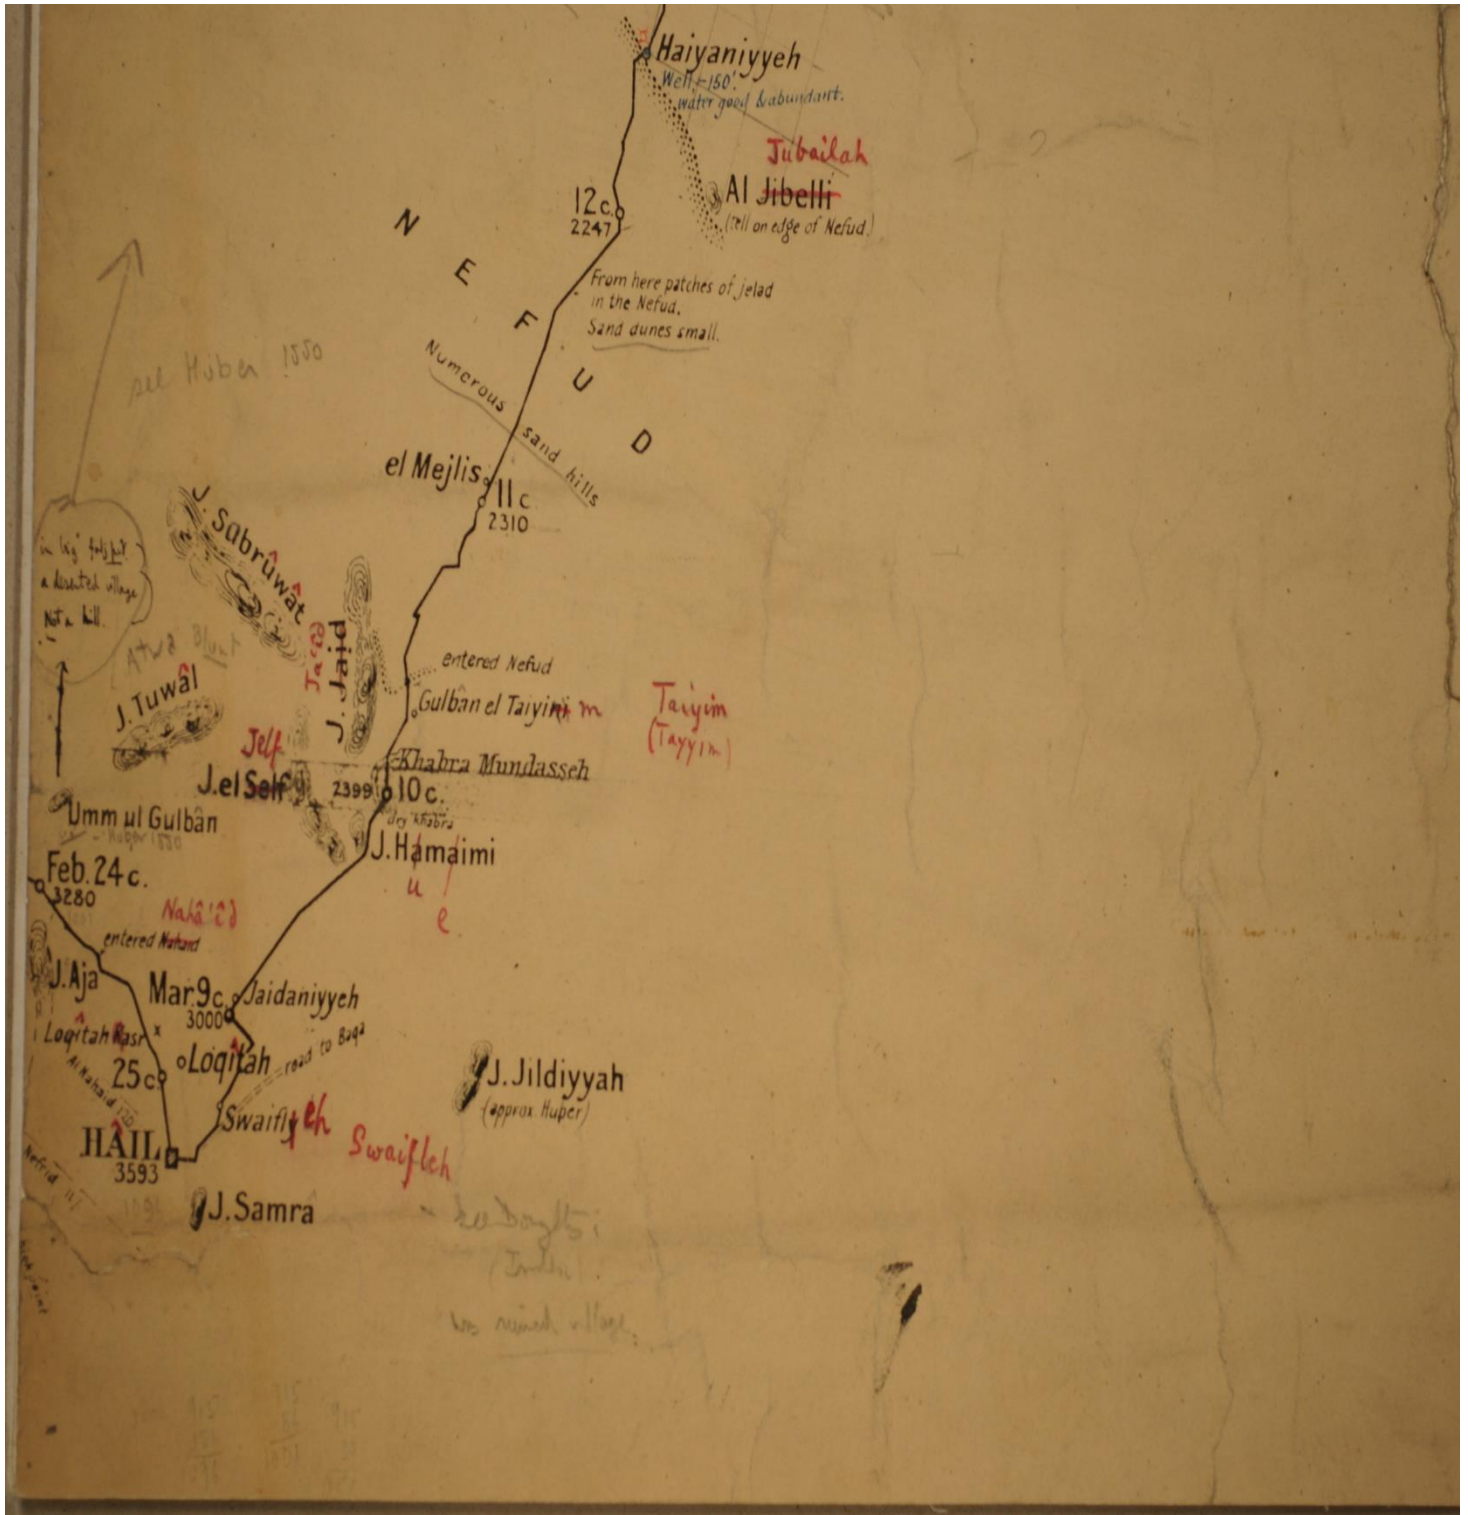 Haiyaniyyeh
Well, 150'.
water good & abundant.
Jubailah
Al Jibelli
(Tell on edge of Nefud.)
12c.
2247
N E F U D
From here patches of jelad
in the Nefud.
Sand dunes small.
see Huber 1880
Numerous sand hills
el Mejlis
11c
2310
J. Sabrûwât
a deserted village
Not a hill.
Blunt
Ja'îd
J. Jaid
entered Nefud
Gulbân el Taiyin m
Taiyim
(Tayyim)
J. Tuwâl
Jelf
J. el Self
Khabra Mundasseh
2399
10c.
dry khabra
Umm ul Gulbân
Huber 1880
J. Hamaimi
u
e
Feb. 24c.
3280
Nahâ'îd
entered Nahaid
J. Aja
Mar. 9c.
3000
Jaidaniyyeh
Loqîtah Qasr
road to Baqa
Loqîtah
25c.
Al Nahaid
J. Jildiyyah
(approx. Huber)
Swaifly eh
Swaifleh
HÂIL
3593
J. Samra
high point
village